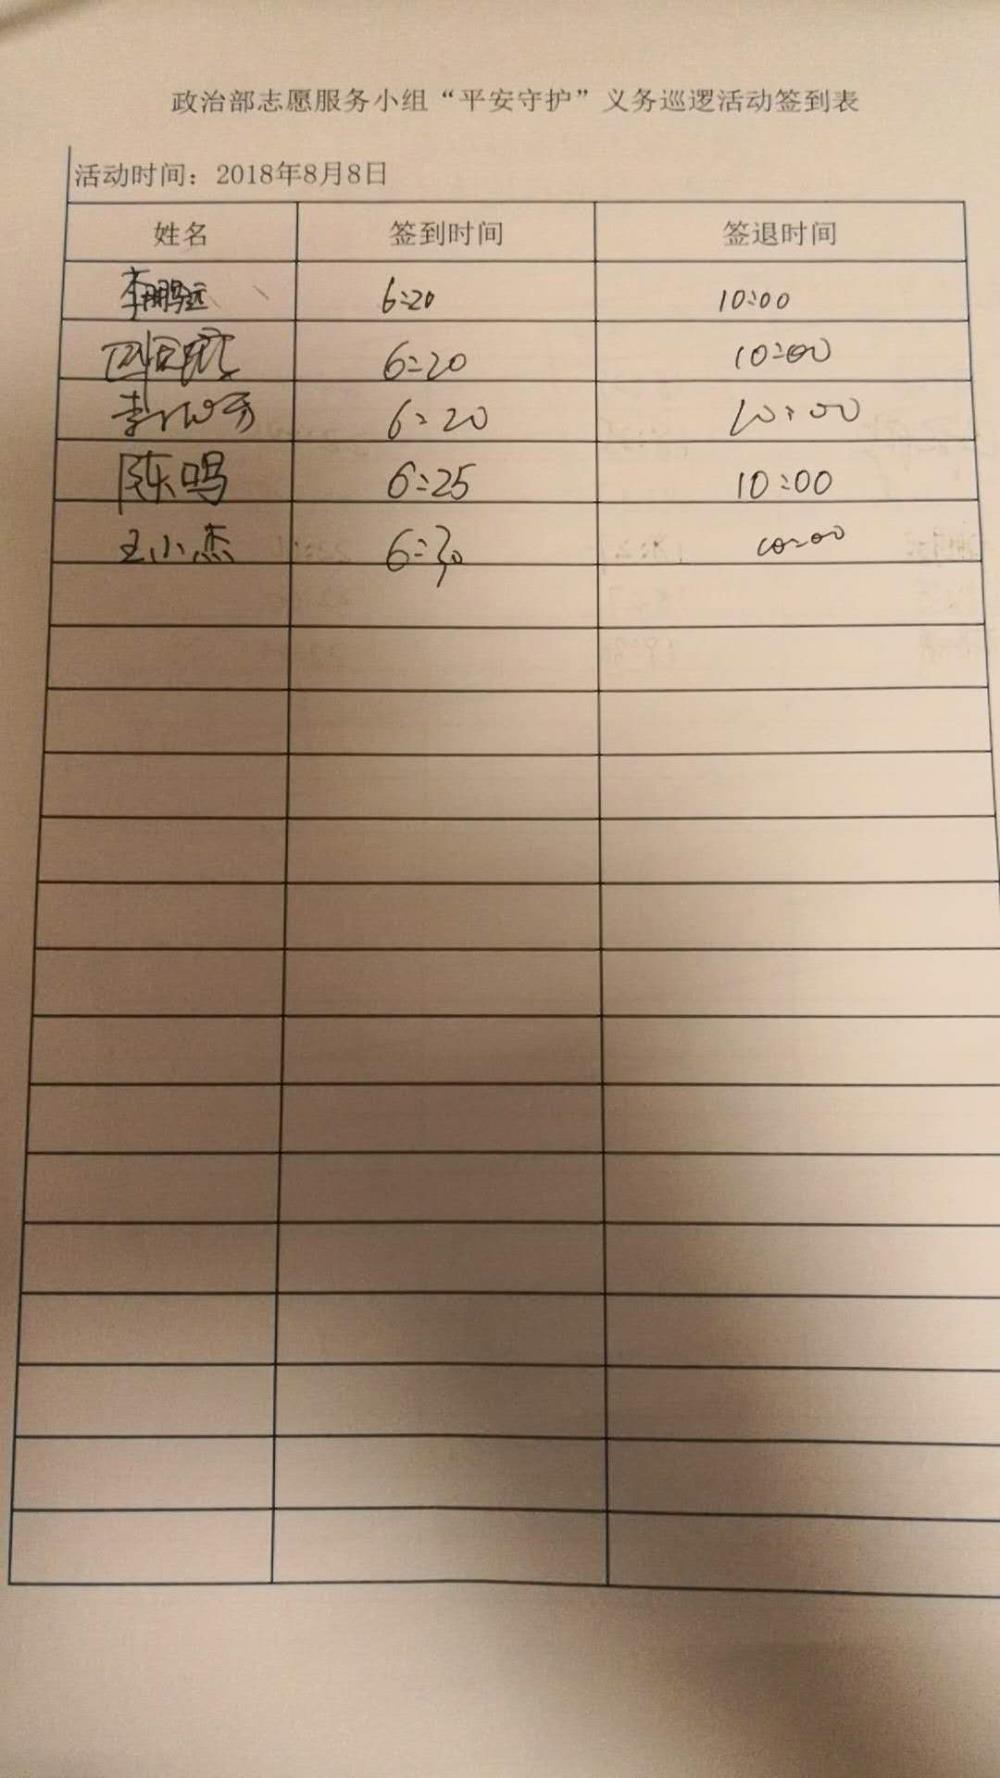 政治部志愿服务小组“平安守护”义务巡逻活动签到表
活动时间：2018年8月8日
姓名 签到时间 签退时间
李鹏远 6:20 10:00
6:20 10:00
李 6:20 10:00
陈鸣 6:25 10:00
王小杰 6:30 10:00